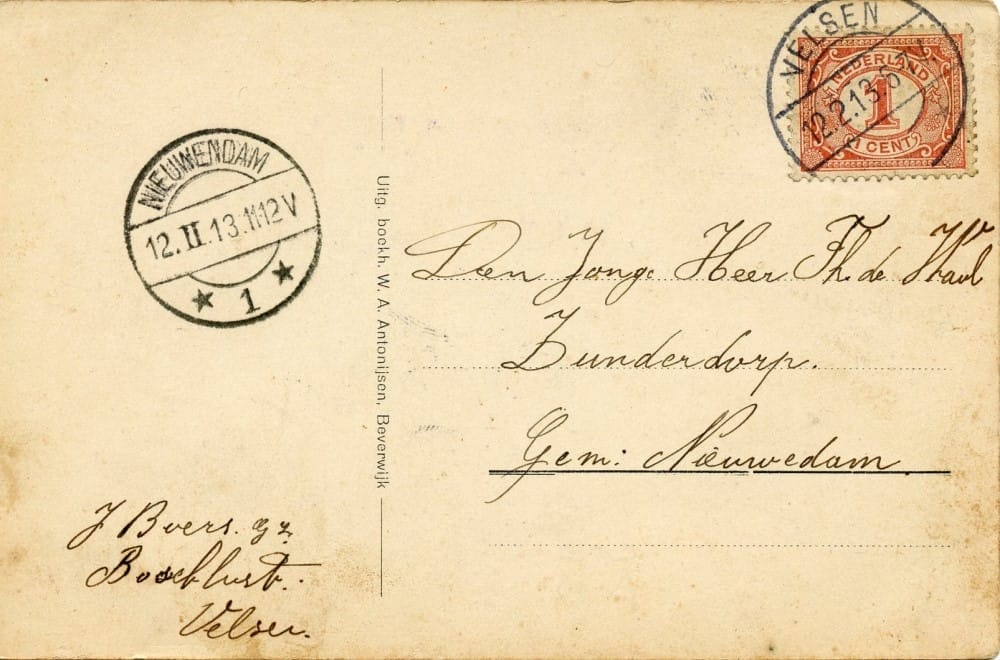 VELSEN
12.2.13.5
NEDERLAND
1
1 CENT
NIEUWENDAM
12.II.13.11-12V
1
Uitg. boekh. W. A. Antonijsen, Beverwijk
Den Jonge Heer Th. de
Zunderdorp.
Gem: Nieuwedam
J Boers. Gz.
Velsen.